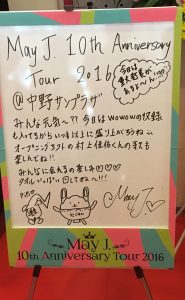 May J. 10th Anniversary
Tour 2016
@中野サンプラザ
今日は
重大発表が
あるよ
みんな元気〜?? 今日はwowowの収録
も入ってるからいつも以上に盛り上がろうね
オープニングアクトの村上佳佑くんの歌も
楽しんでね!
みんなに会えるの楽しみ♡♡♡
タオルいっぱい回してね〜!!!
May J.
May J.
10th Anniversary Tour 2016